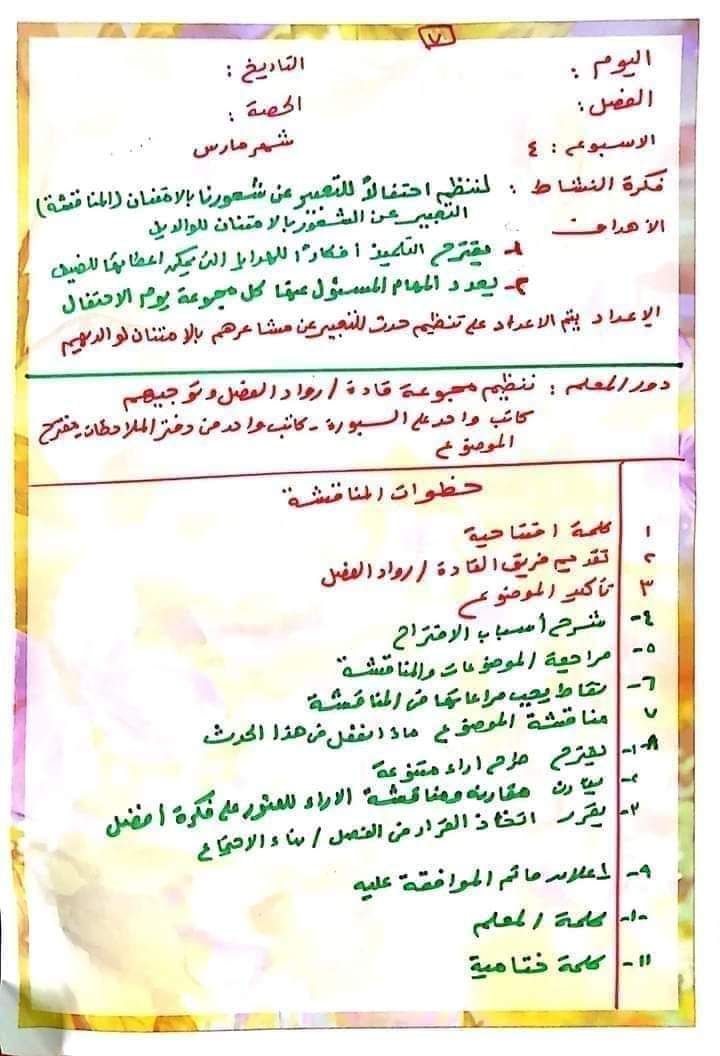 ٧
اليوم : التاريخ :
الفصل : الحصة :
الاسبوع : ٤ شهر مارس
فكرة النشاط : لننظم احتفالاً للتعبير عن شعورنا بالامتنان (المناقشة)
التعبير عن الشعور بالامتنان للوالدين
الأهداف
١- يقترح التلميذ أفكارًا للهدايا التى يمكن اعطائها للضيف
٢- يعدد المهام المسئول عنها كل مجموعة يوم الاحتفال
الإعداد يتم الاعداد على تنظيم حدث للتعبير عن مشاعرهم بالامتنان لوالديهم
دور المعلم : تنظيم مجموعة قادة / رواد الفصل وتوجيههم
كاتب واحد على السبورة - كاتب واحد من دفتر الملاحظات - يقترح
الموضوع
خطوات المناقشة
١ كلمة افتتاحية
٢ تقديم فريق القادة / رواد الفصل
٣ تأكيد الموضوع
٤- شرح أسباب الاقتراح
٥- مراجعة الموضوعات والمناقشة
٦- نقاط يجب مراعاتها فى المناقشة
٧ مناقشة الموضوع ماذا نفعل فى هذا الحدث
٨- ١- يقترح طرح آراء متنوعة
٢- يقارن مقارنة ومناقشة الآراء للعثور على فكرة أفضل
٣- يقرر اتخاذ القرار فى الفصل / بناء الاجماع
٩- إعلان ما تم الموافقة عليه
١٠- كلمة المعلم
١١- كلمة ختامية